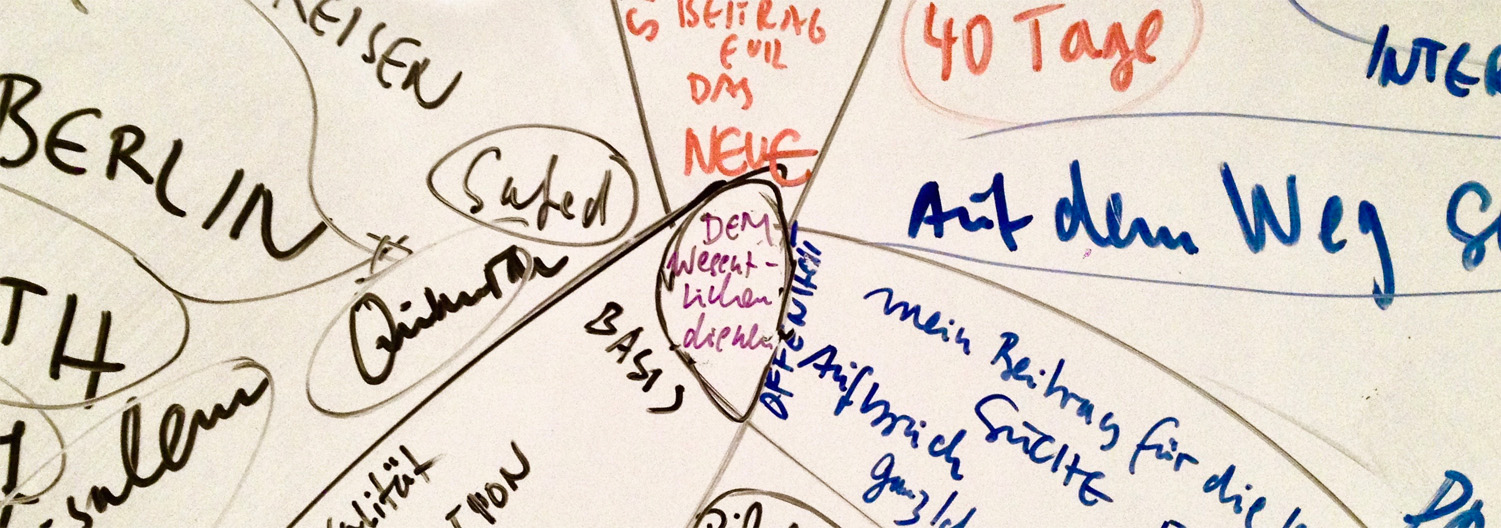 REISEN
BERLIN
Safed
TH
S BEITRAG
FÜR
DAS
NEUE
40 Tage
INTER
Auf dem Weg
DEM
Wesent-
lichen
dienen
BASIS
OFFENHEIT
mein Beitrag für die
Aufbruch SUCHE
ganzh
salem
alität